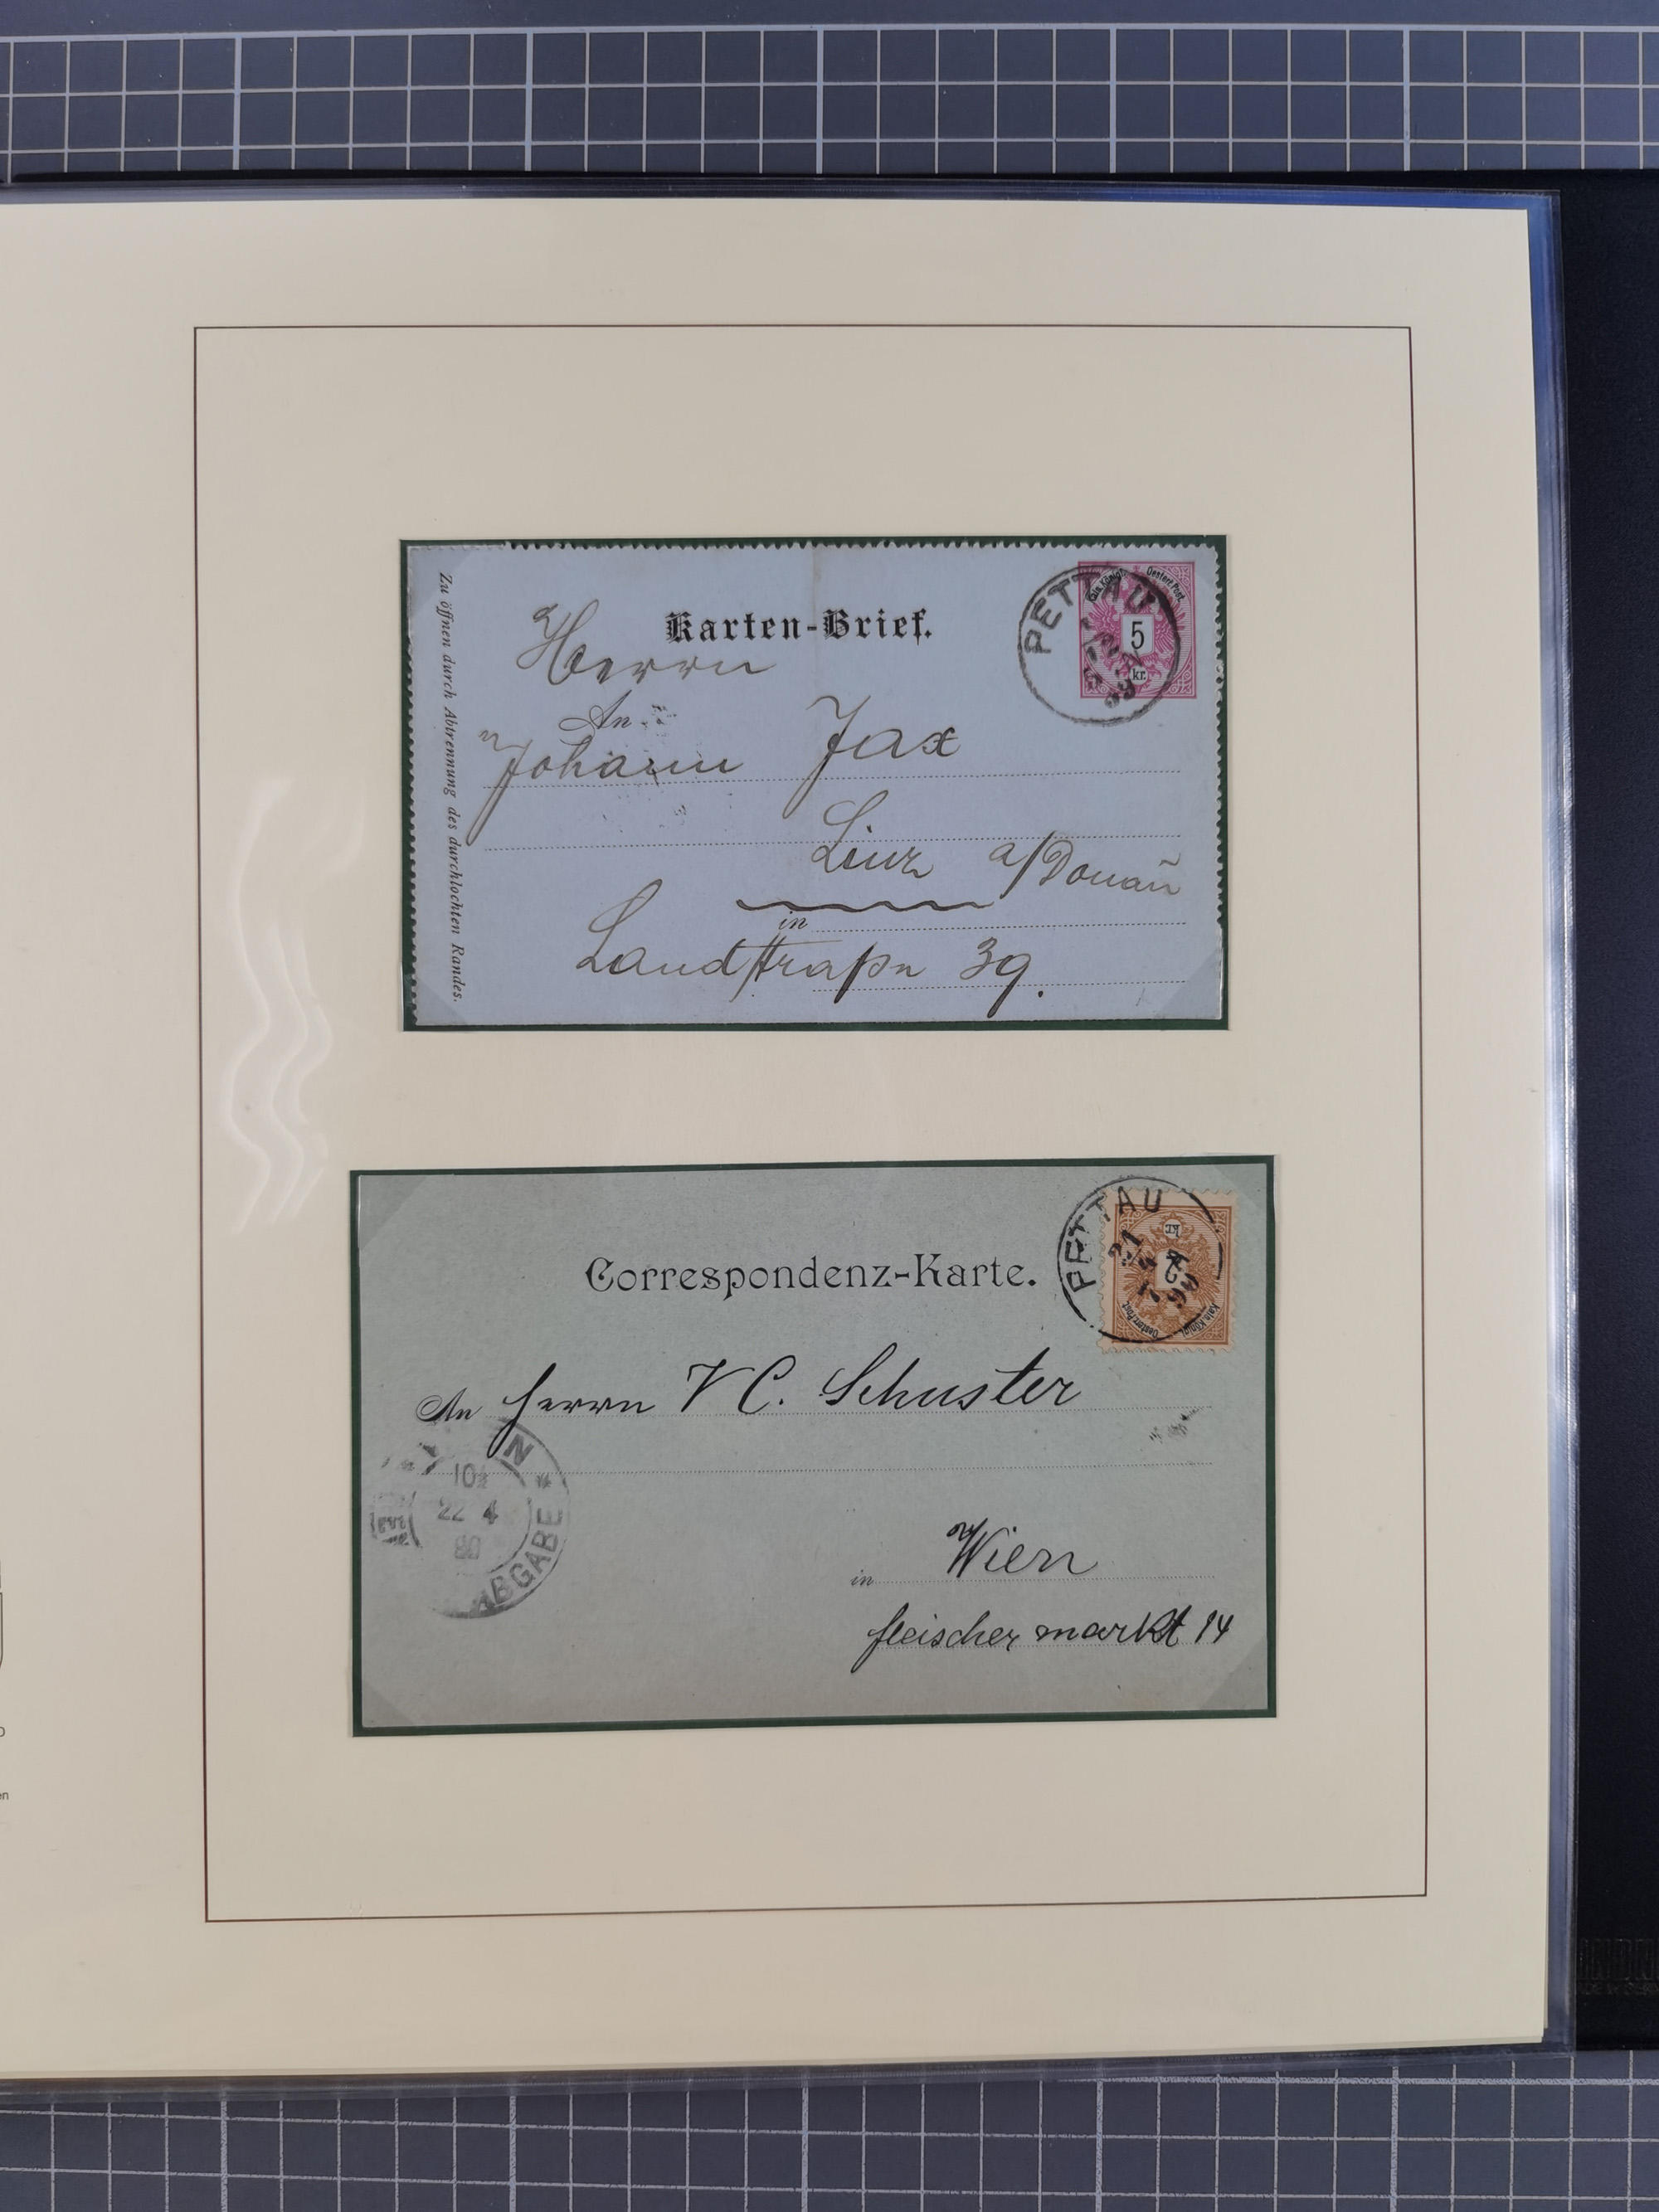 Karten-Brief.
Kais. Königl. Oesterr. Post.
5
kr.
PETTAU
Herrn
An
Johann Jax
Linz a/Donau
in
Landstraße 39.
Zu öffnen durch Abtrennung des durchlochten Randes.
Correspondenz-Karte.
PETTAU
21
4
kr.
2
Kais. Königl. Oesterr. Post.
An Herrn V C. Schuster
10½
22 4
ABGABE *
in Wien
fleischer markt 14
en